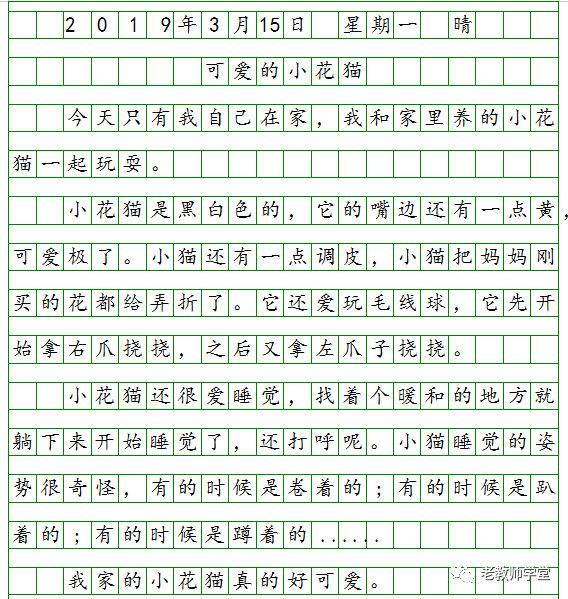 2019年3月15日 星期一 晴
可爱的小花猫
今天只有我自己在家，我和家里养的小花
猫一起玩耍。
小花猫是黑白色的，它的嘴边还有一点黄，
可爱极了。小猫还有一点调皮，小猫把妈妈刚
买的花都给弄折了。它还爱玩毛线球，它先开
始拿右爪挠挠，之后又拿左爪子挠挠。
小花猫还很爱睡觉，找着个暖和的地方就
躺下来开始睡觉了，还打呼呢。小猫睡觉的姿
势很奇怪，有的时候是卷着的；有的时候是趴
着的；有的时候是蹲着的......
我家的小花猫真的好可爱。
老教师学堂